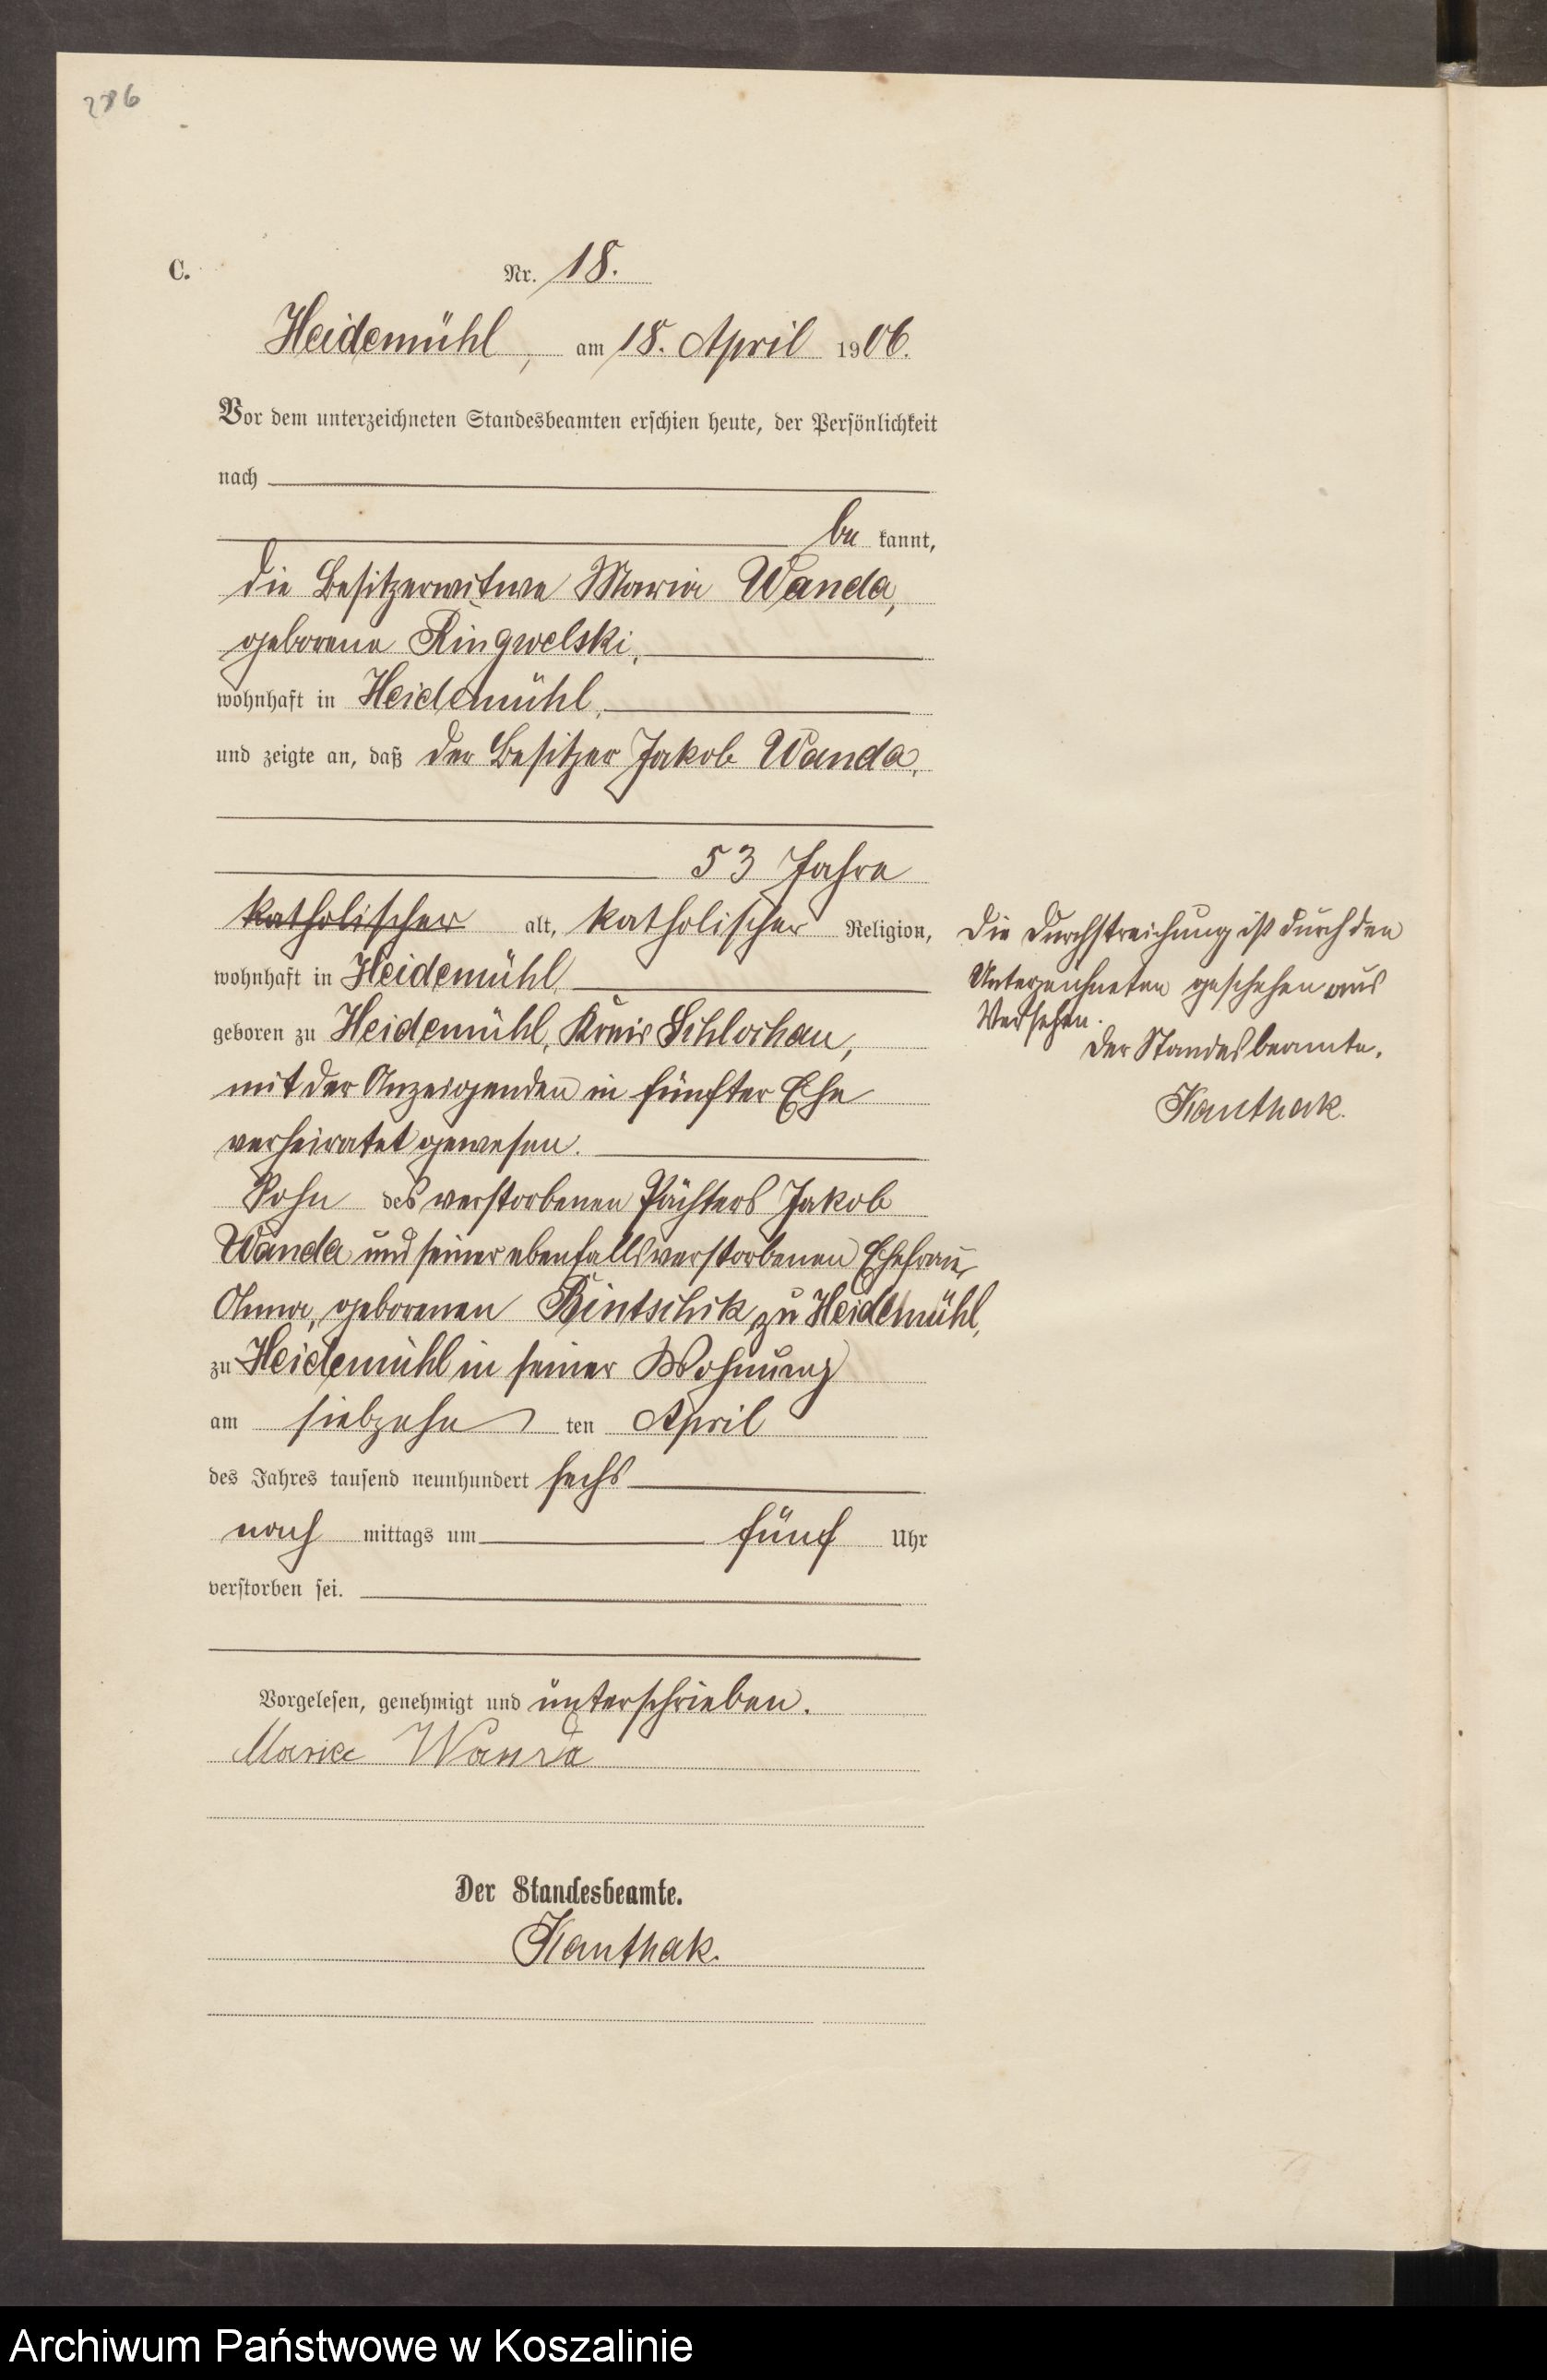 286
C.
Nr. 18.
Heidemühl, am 18. April 1906.
Vor dem unterzeichneten Standesbeamten erschien heute, der Persönlichkeit
nach
be kannt,
die Besitzerwitwe Maria Wanda,
geborene Ringwelski,
wohnhaft in Heidemühl,
und zeigte an, daß der Besitzer Jakob Wanda,
53 Jahre
katholischer alt, katholischer Religion,
wohnhaft in Heidemühl
geboren zu Heidemühl, Kreis Schlochau,
mit der Anzeigenden in fünfter Ehe
verheiratet gewesen.
Sohn des verstorbenen Pächters Jakob
Wanda und seiner ebenfalls verstorbenen Ehefrau,
Anna, geborenen Bintschik zu Heidemühl,
zu Heidemühl in seiner Wohnung
am siebzehn ten April
des Jahres tausend neunhundert sechs
nach mittags um fünf Uhr
verstorben sei.
Die Durchstreichung ist durch den
Unterzeichneten geschehen aus
Versehen.
Der Standesbeamte.
Kauthak.
Vorgelesen, genehmigt und unterschrieben.
Marie Wanda
Der Standesbeamte.
Kauthak.
Archiwum Państwowe w Koszalinie